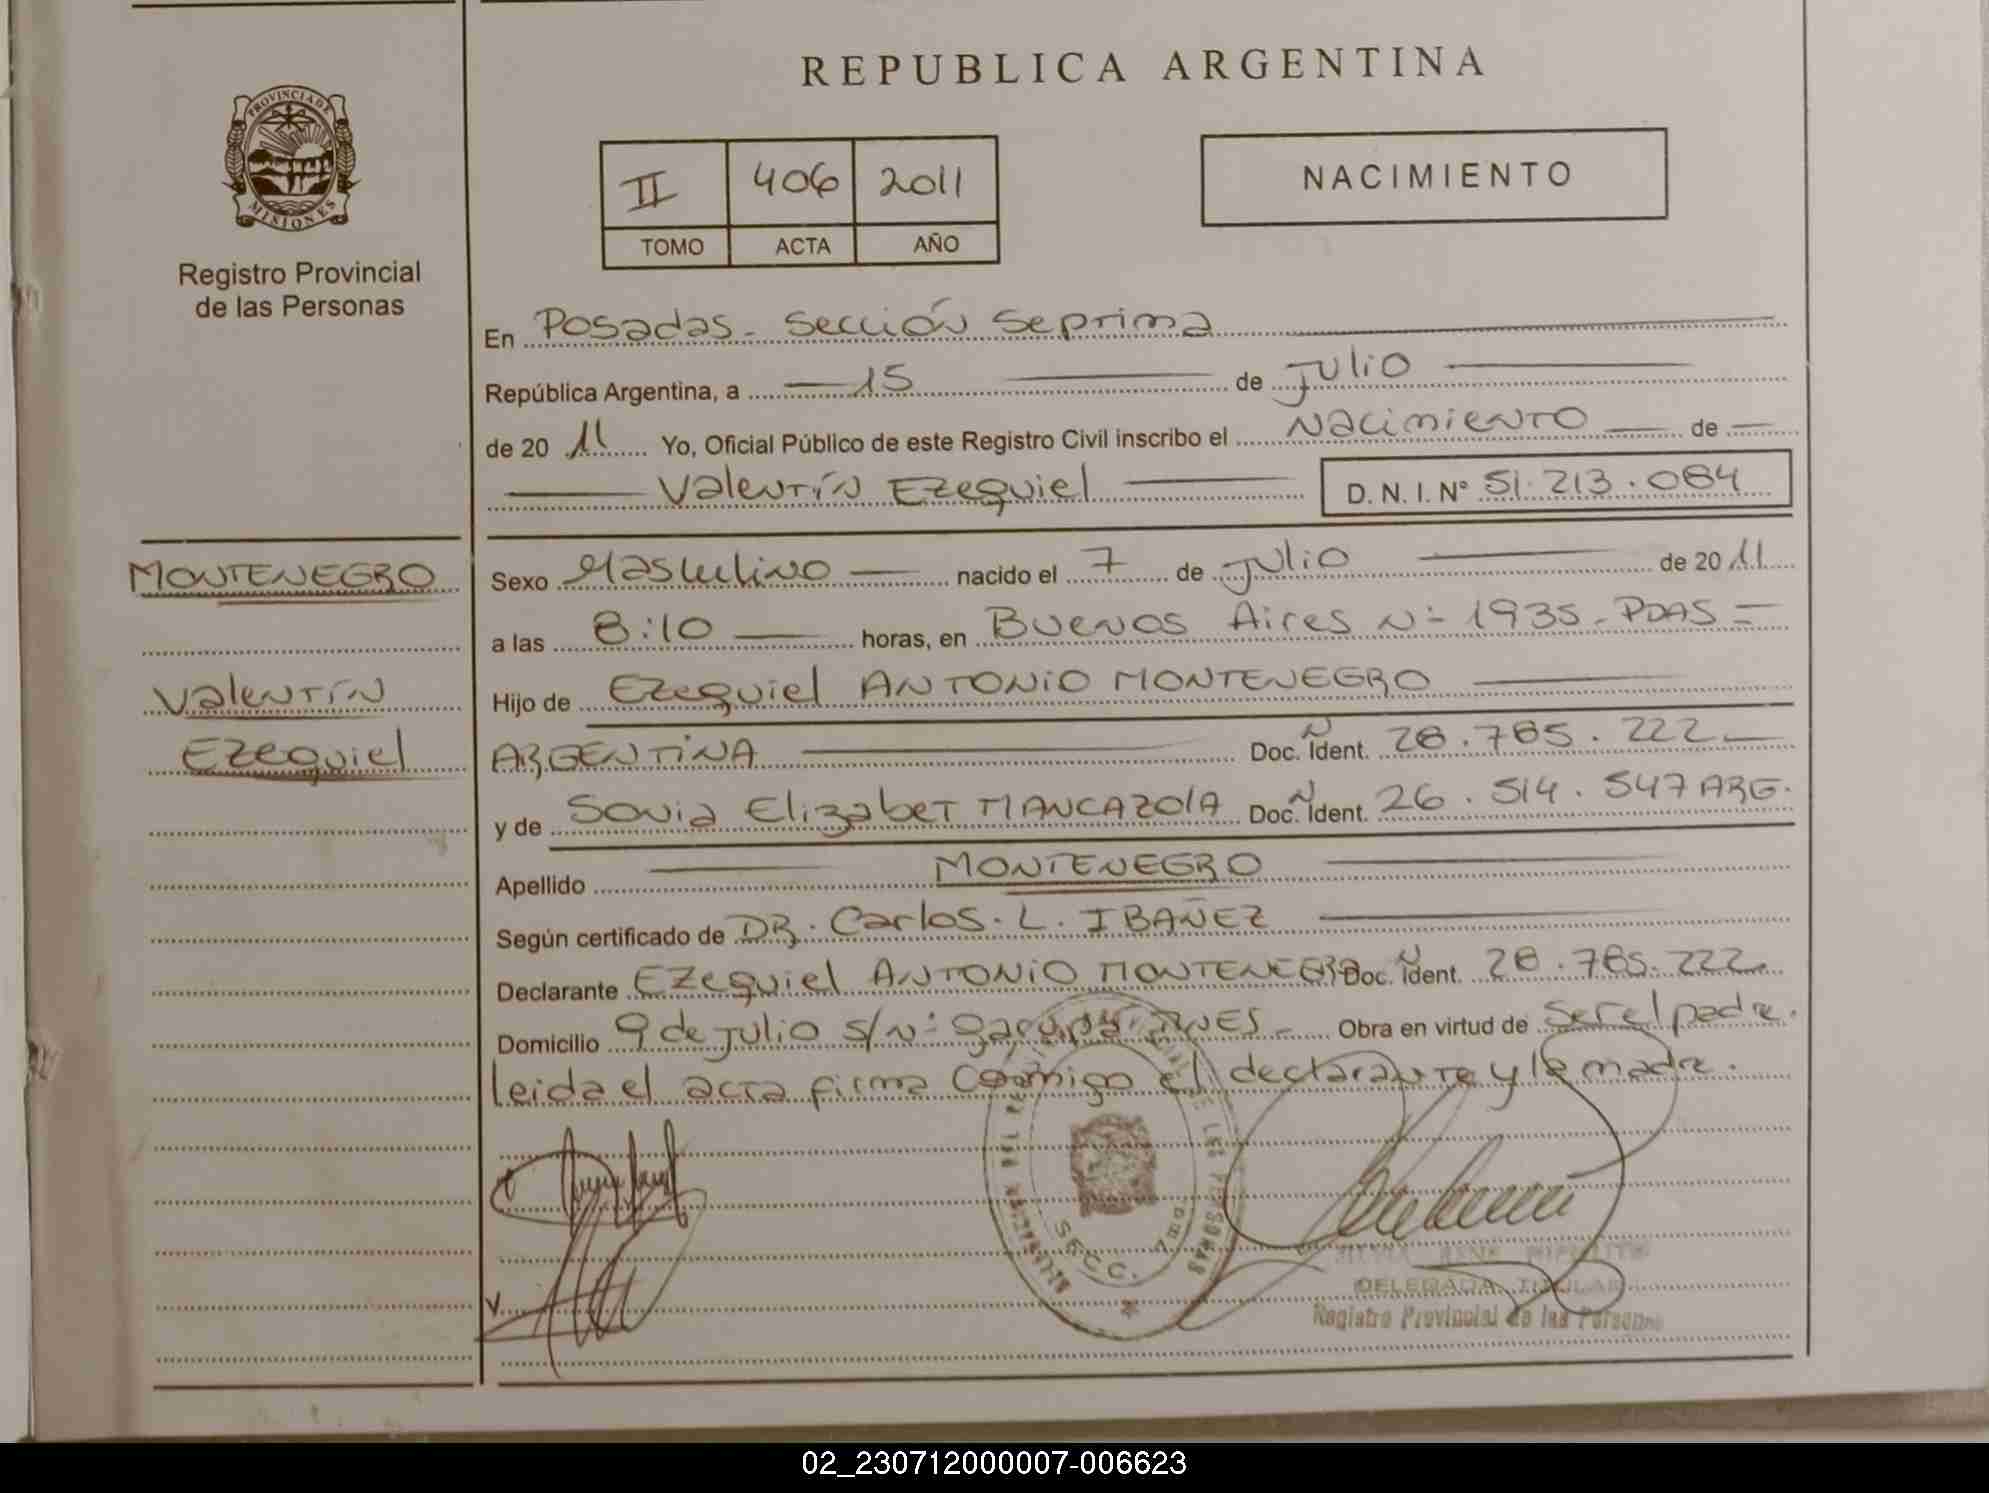 REPUBLICA ARGENTINA
PROVINCIA DE
MISIONES
Registro Provincial
de las Personas
II 406 2011
TOMO ACTA AÑO
NACIMIENTO
En Posadas - Sección Septima
República Argentina, a 15 de Julio
de 20 11 Yo, Oficial Público de este Registro Civil inscribo el Nacimiento de
Valentín Ezequiel D.N.I. Nº 51.213.084
MONTENEGRO
Valentín
Ezequiel
Sexo Masculino nacido el 7 de Julio de 20 11
a las 8:10 horas, en Buenos Aires Nº 1935 - PDAS =
Hijo de Ezequiel ANTONIO MONTENEGRO
ARGENTINA Doc. Ident. Nº 28.785.222
y de Sonia Elizabet MANCAZOIA Doc. Ident. Nº 26.514.547 ARG.
Apellido MONTENEGRO
Según certificado de DR. Carlos. L. IBAÑEZ
Declarante Ezequiel ANTONIO MONTENEGRO Doc. Ident. Nº 28.785.222
Domicilio 9 de Julio s/Nº Garupá Obra en virtud de ser el padre.
leida el acta firma conmigo el declarante y la madre.
SECC. 7ma.
DELEGADA TITULAR
Registro Provincial de las Personas
02_230712000007-006623